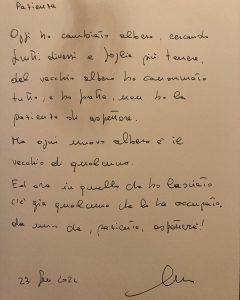 Pazienza
Oggi ho cambiato albero, cercando
frutti diversi e foglie più tenere,
del vecchio albero ho consumato
tutto, e ho fretta, non ho la
pazienza di aspettare.
Ma ogni nuovo albero è il
vecchio di qualcuno.
Ed ora in quello che ho lasciato
c'è già qualcuno che lo ha occupato,
da uno che, paziente, aspettava!